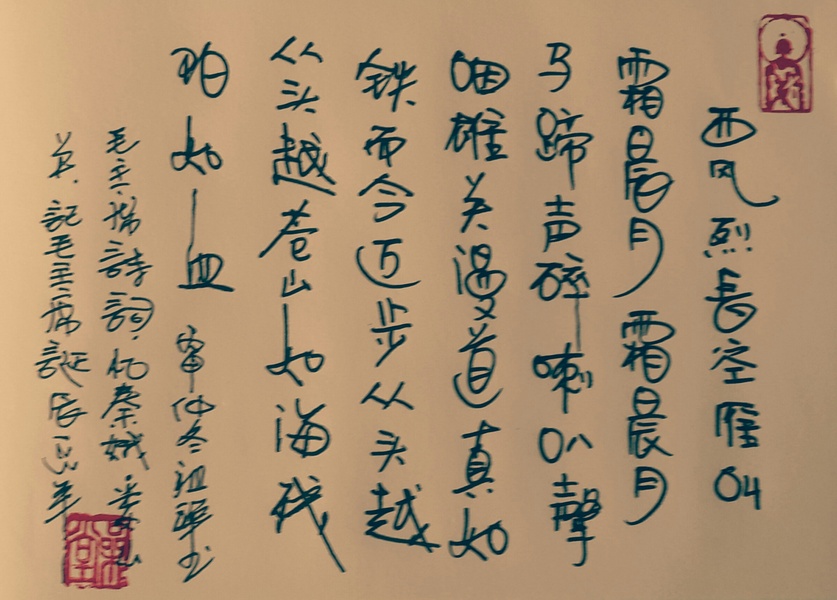 西风烈長空雁叫
霜晨月霜晨月
马蹄声碎喇叭聲
咽雄关漫道真如
铁而今迈步从头越
从头越苍山如海残
阳如血
仲冬祖
毛主席詩詞忆秦娥娄山
关記毛主席誕辰